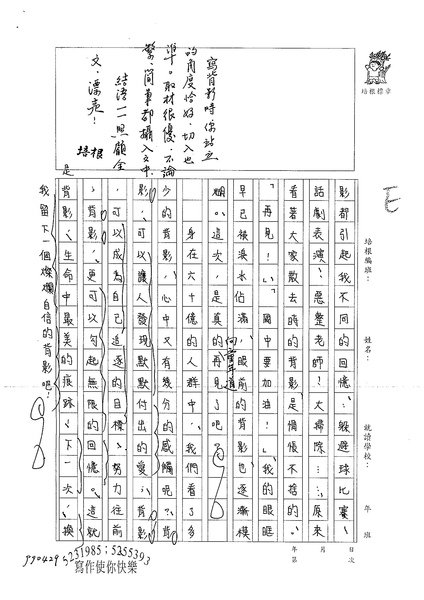 培根標幸
培根編班：
姓名：
就讀學校：
年　班
日次
月
年第
E
影都引起我不同的回憶：躲避球比賽、
話劇表演、惡整老師、大掃除……原來
看著大家散去時的背影是惆悵不捨的。
「再見！」「國中要加油！」我的眼眶
早已被淚水佔滿，眼前的背影也逐漸模
糊。這次，是真的再見了吧！
何當再道
身在六十億的人群中，我們看了多
少的背影，心中又有幾分的感觸呢？背
影，可以讓人發現默默付出的愛；背影
，可以成為自己追逐的目標，努力往前
；背影，更可以勾起無限的回憶。這就
是背影，生命中最美的痕跡，下一次，換
我留下一個燦爛自信的背影吧！
寫背影時你站立
的角度恰好，切入也
準。取材很優，不論
繁、簡事都攝入文中，
結語一一照顧全
文，漂亮！
培根
990429
5231985；5255393
寫作使你快樂